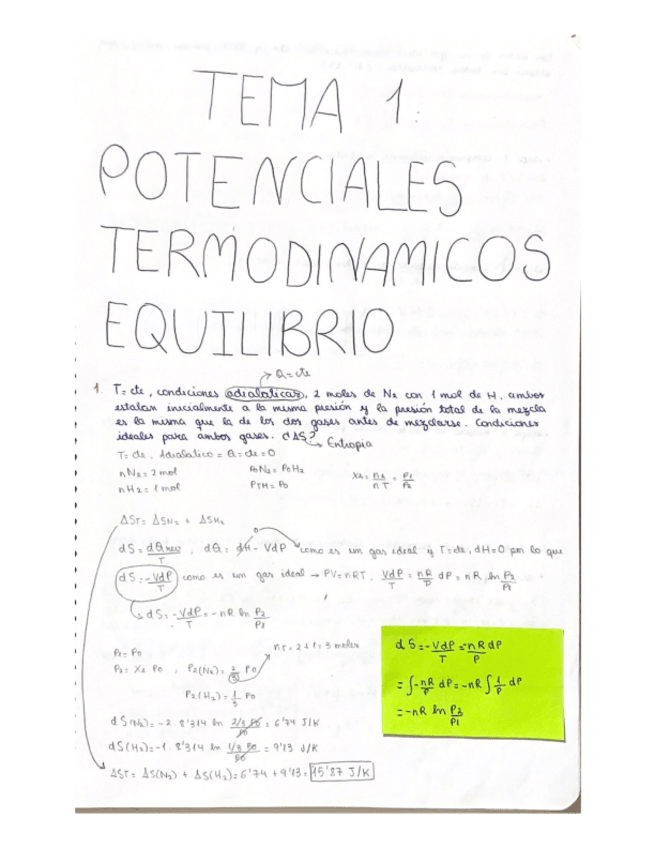 TEMA 1:
POTENCIALES
TERMODINAMICOS
EQUILIBRIO
→ Q = cte
1. T= cte, condiciones adiabaticas, 2 moles de N₂ con 1 mol de H, ambos
estaban inicialmente a la misma presión y la presión total de la mezcla
es la misma que la de los dos gases antes de mezclarse. Condiciones
ideales para ambos gases. ¿ΔS? → Entropia
T= cte, Adiabatico = Q = cte = 0
nN₂ = 2 mol P₀N₂ = P₀H₂ XA = nA/nT = P1/P2
nH₂ = 1 mol PTH = P₀
ΔST = ΔSN₂ + ΔSH₂
dS = dQrev/T , dQ = dH - VdP como es un gas ideal y T= cte, dH=0 por lo que
dS = -VdP/T como es un gas ideal → PV=nRT, VdP/T = nR/P dP = nR ln P2/P1
dS = -VdP/T = -nR ln P2/P1
nT = 2 + 1 = 3 moles
P1 = P₀
P2 = X2 P₀ , P2(N₂) = 2/3 P₀
P2(H₂) = 1/3 P₀
dS(N₂) = -2 · 8'314 ln 2/3 P₀/P₀ = 6'74 J/K
dS(H₂) = -1 · 8'314 ln 1/3 P₀/P₀ = 9'13 J/K
ΔST = ΔS(N₂) + ΔS(H₂) = 6'74 + 9'13 = 15'87 J/K
dS = -VdP/T = -nR/P dP
= ∫ -nR/P dP = -nR ∫ 1/P dP
= -nR ln P2/P1